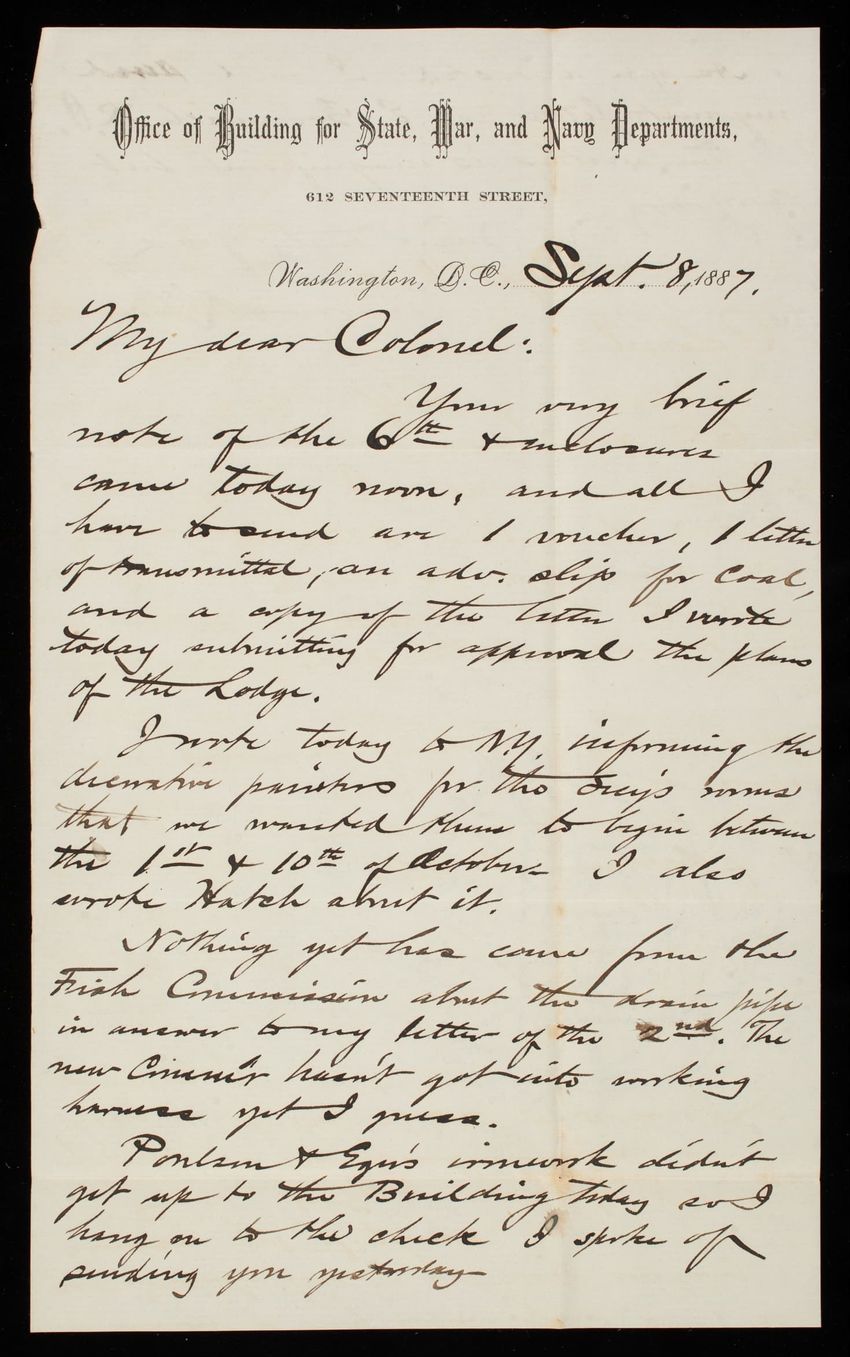 Office of Building for State, War, and Navy Departments,
612 SEVENTEENTH STREET,
Washington, D.C., Sept. 8, 1887.
My dear Colonel:
Your very brief
note of the 6th & enclosures
came today noon, and all I
have to send are 1 voucher, 1 letter
of transmittal, an adv. slip for Coal,
and a copy of the letter I wrote
today submitting for approval the plans
of the Lodge.
I wrote today to N.Y. informing the
decorative painters for the Sec'y's rooms
that we wanted them to begin between
the 1st & 10th of October. I also
wrote Hatch about it.
Nothing yet has come from the
Fish Commission about the drain pipe
in answer to my letter of the 2nd. The
new Comm'r hasn't got into working
harness yet I guess.
Poulson & Eger's ironwork didn't
get up to the Building today so I
hang on to the check I spoke of
sending you yesterday